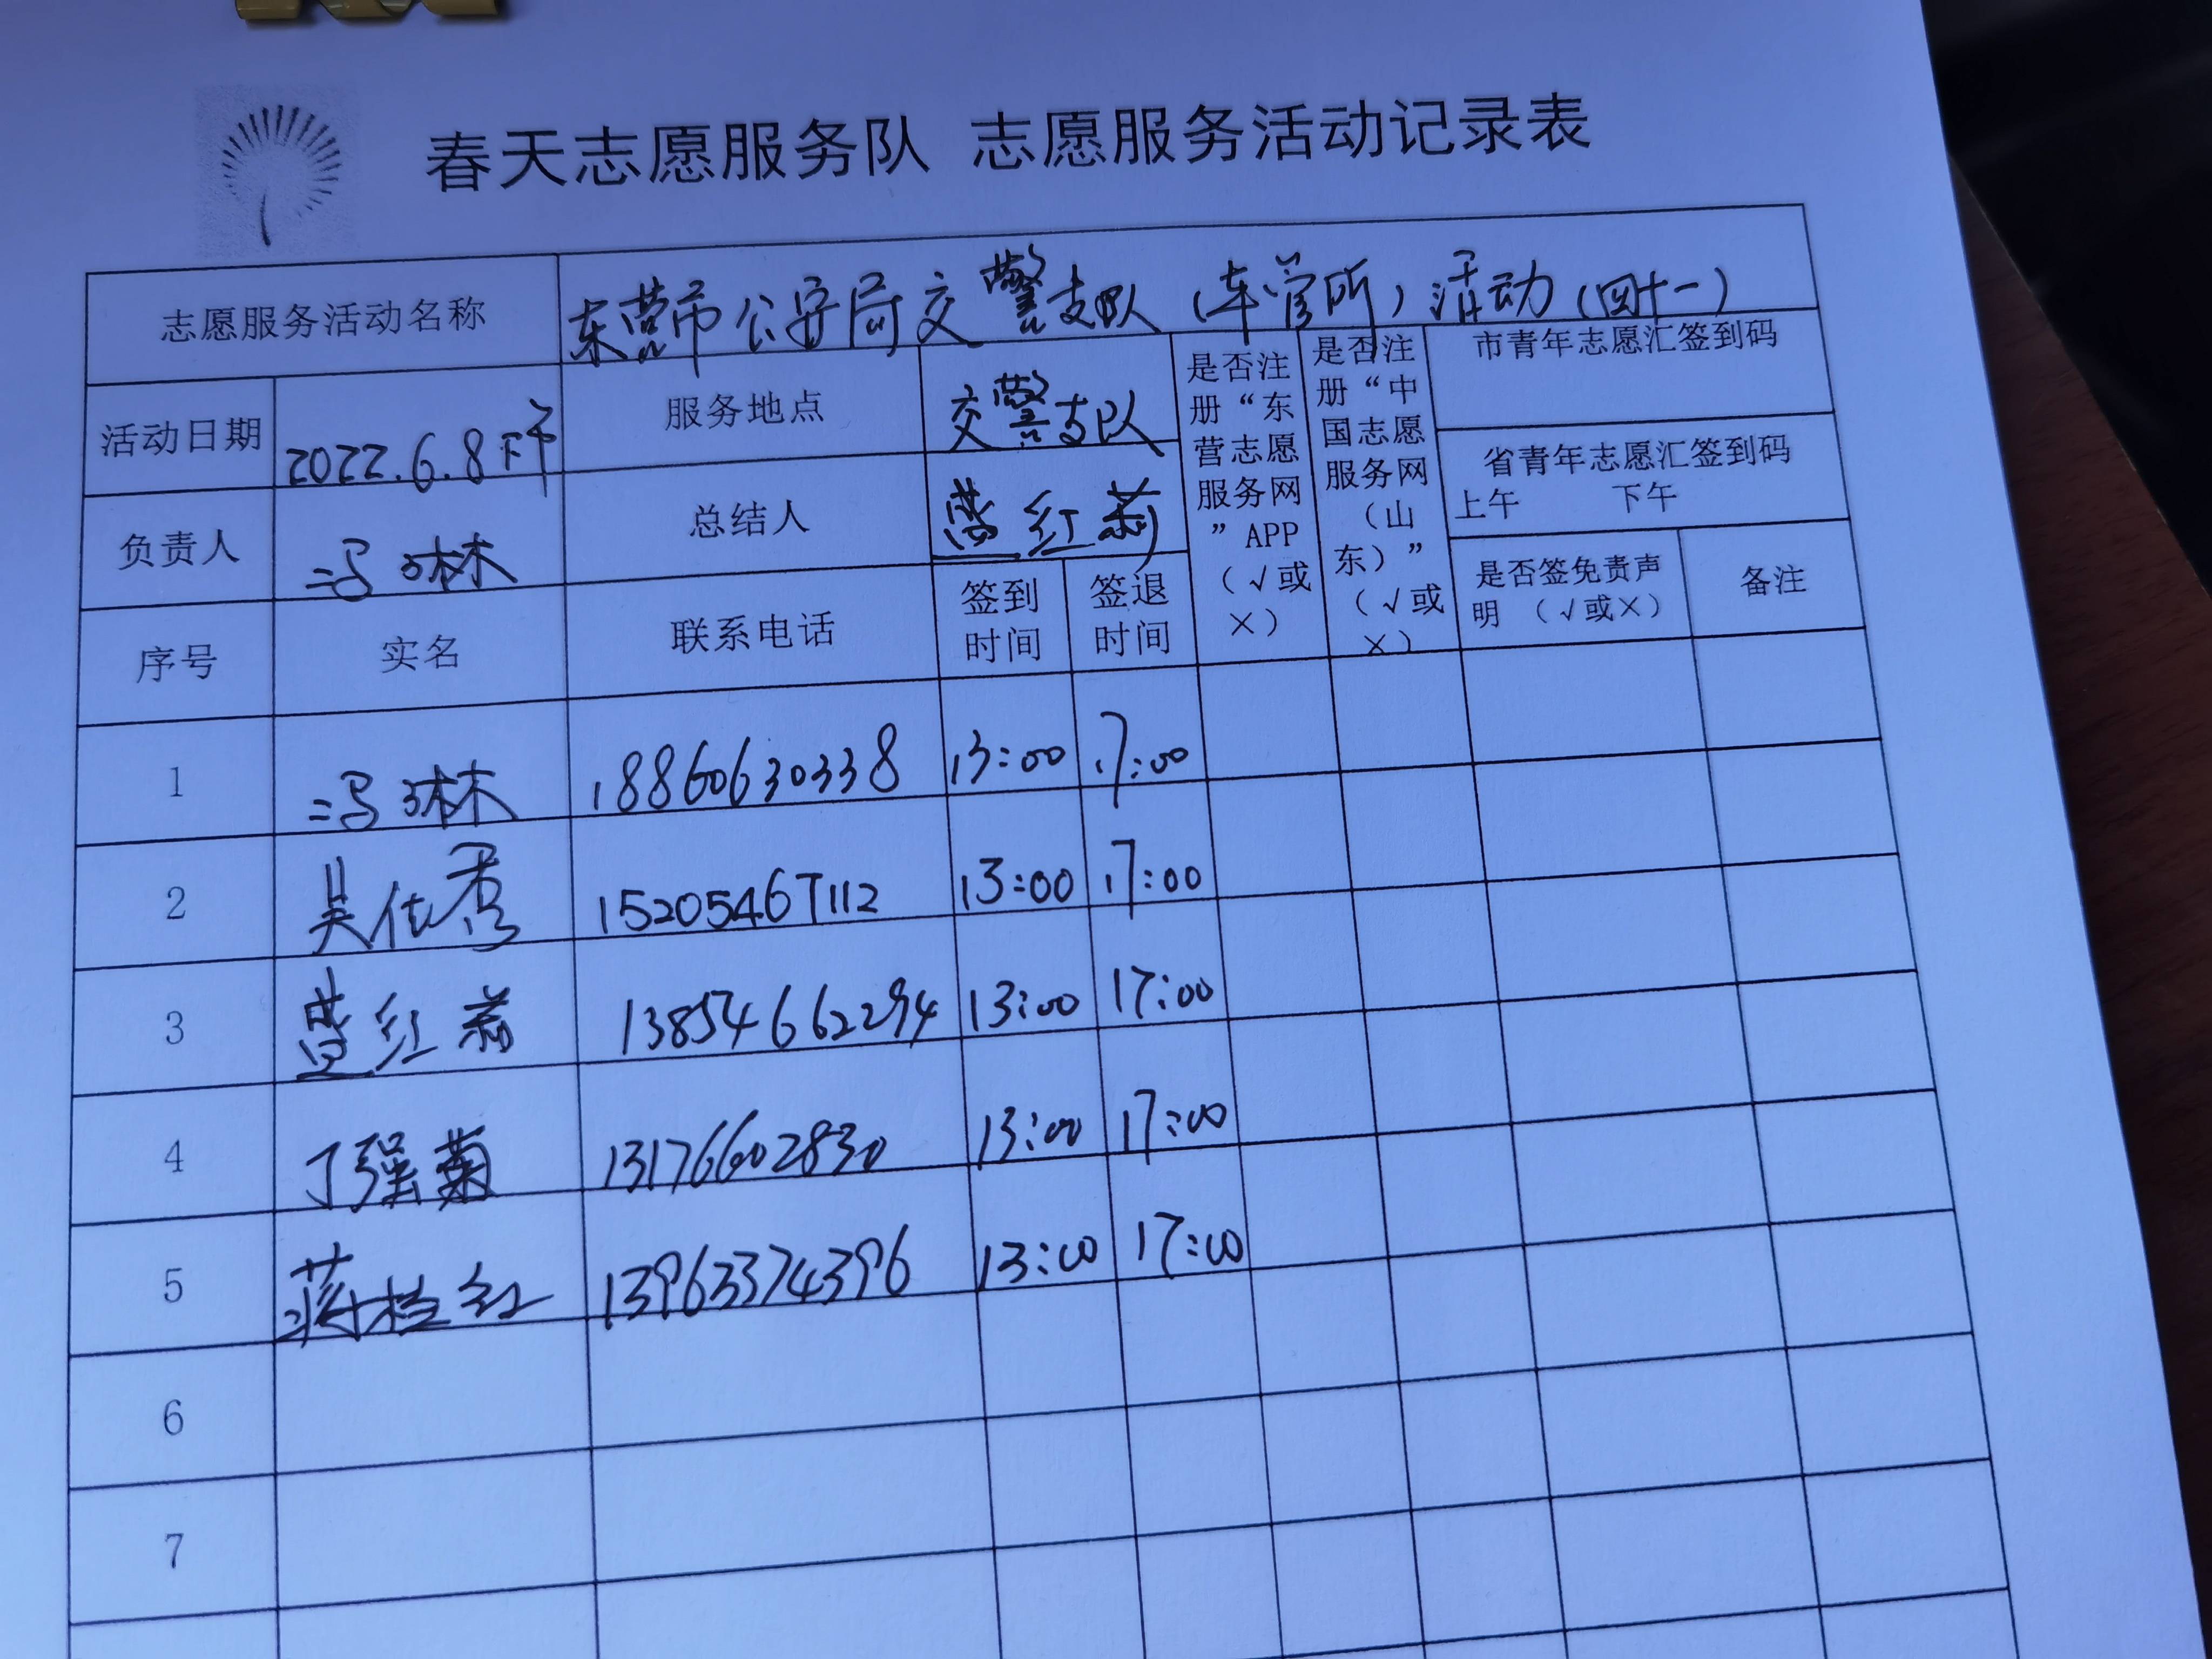 春天志愿服务队 志愿服务活动记录表
志愿服务活动名称 东营市公安局交警支队（车管所）活动（四十一）
活动日期 2022.6.8下午 服务地点 交警支队
负责人 冯琳 总结人 红莉
是否注册“东营志愿服务网”APP（√或×）
是否注册“中国志愿服务网（山东）”（√或×）
市青年志愿汇签到码
省青年志愿汇签到码
上午 下午
是否签免责声明（√或×） 备注
序号 实名 联系电话 签到时间 签退时间
1 冯琳 18860630338 13:00 17:00
2 吴 15205467112 13:00 17:00
3 红莉 13854662294 13:00 17:00
4 丁强菊 13176602830 13:00 17:00
5 蒋桂红 13963374396 13:00 17:00
6
7